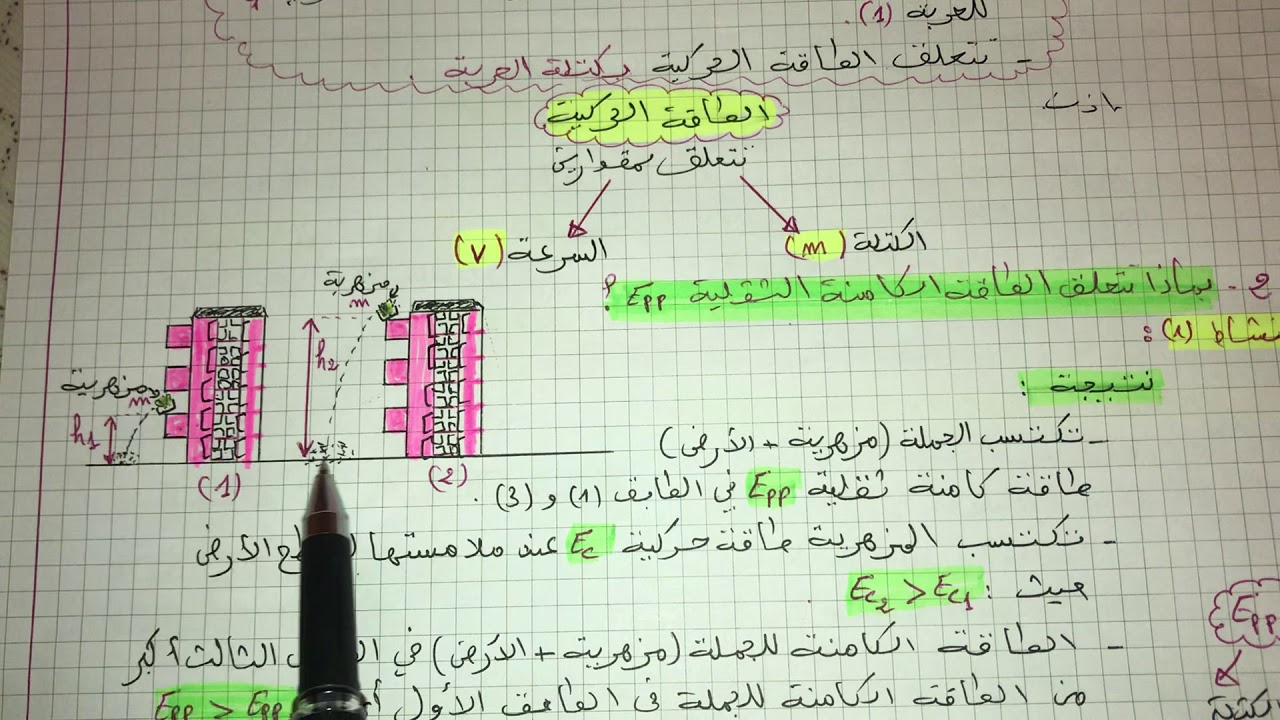 للعربة (1).
- تتعلق الطاقة الحركية بكتلة العربة.
الطاقة الحركية
تتعلق بمقدارين
الكتلة (m)
السرعة (v)
2 - بماذا تتعلق الطاقة الكامنة الثقلية Epp ؟
نشاط (1) :
نتيجة :
- تكتسب الجملة (مزهرية + الأرض)
طاقة كامنة ثقلية Epp في الطابق (1) و (3).
- تكتسب المزهرية طاقة حركية Ec عند ملامستها الأرض
حيث : Ec2 > Ec1
- الطاقة الكامنة للجملة (مزهرية + الأرض) في الثالث أكبر
من الطاقة الكامنة للجملة في الطابق الأول Epp > Epp
مزهرية
m
h2
مزهرية
m
h1
(1)
(2)
Epp
الكتلة